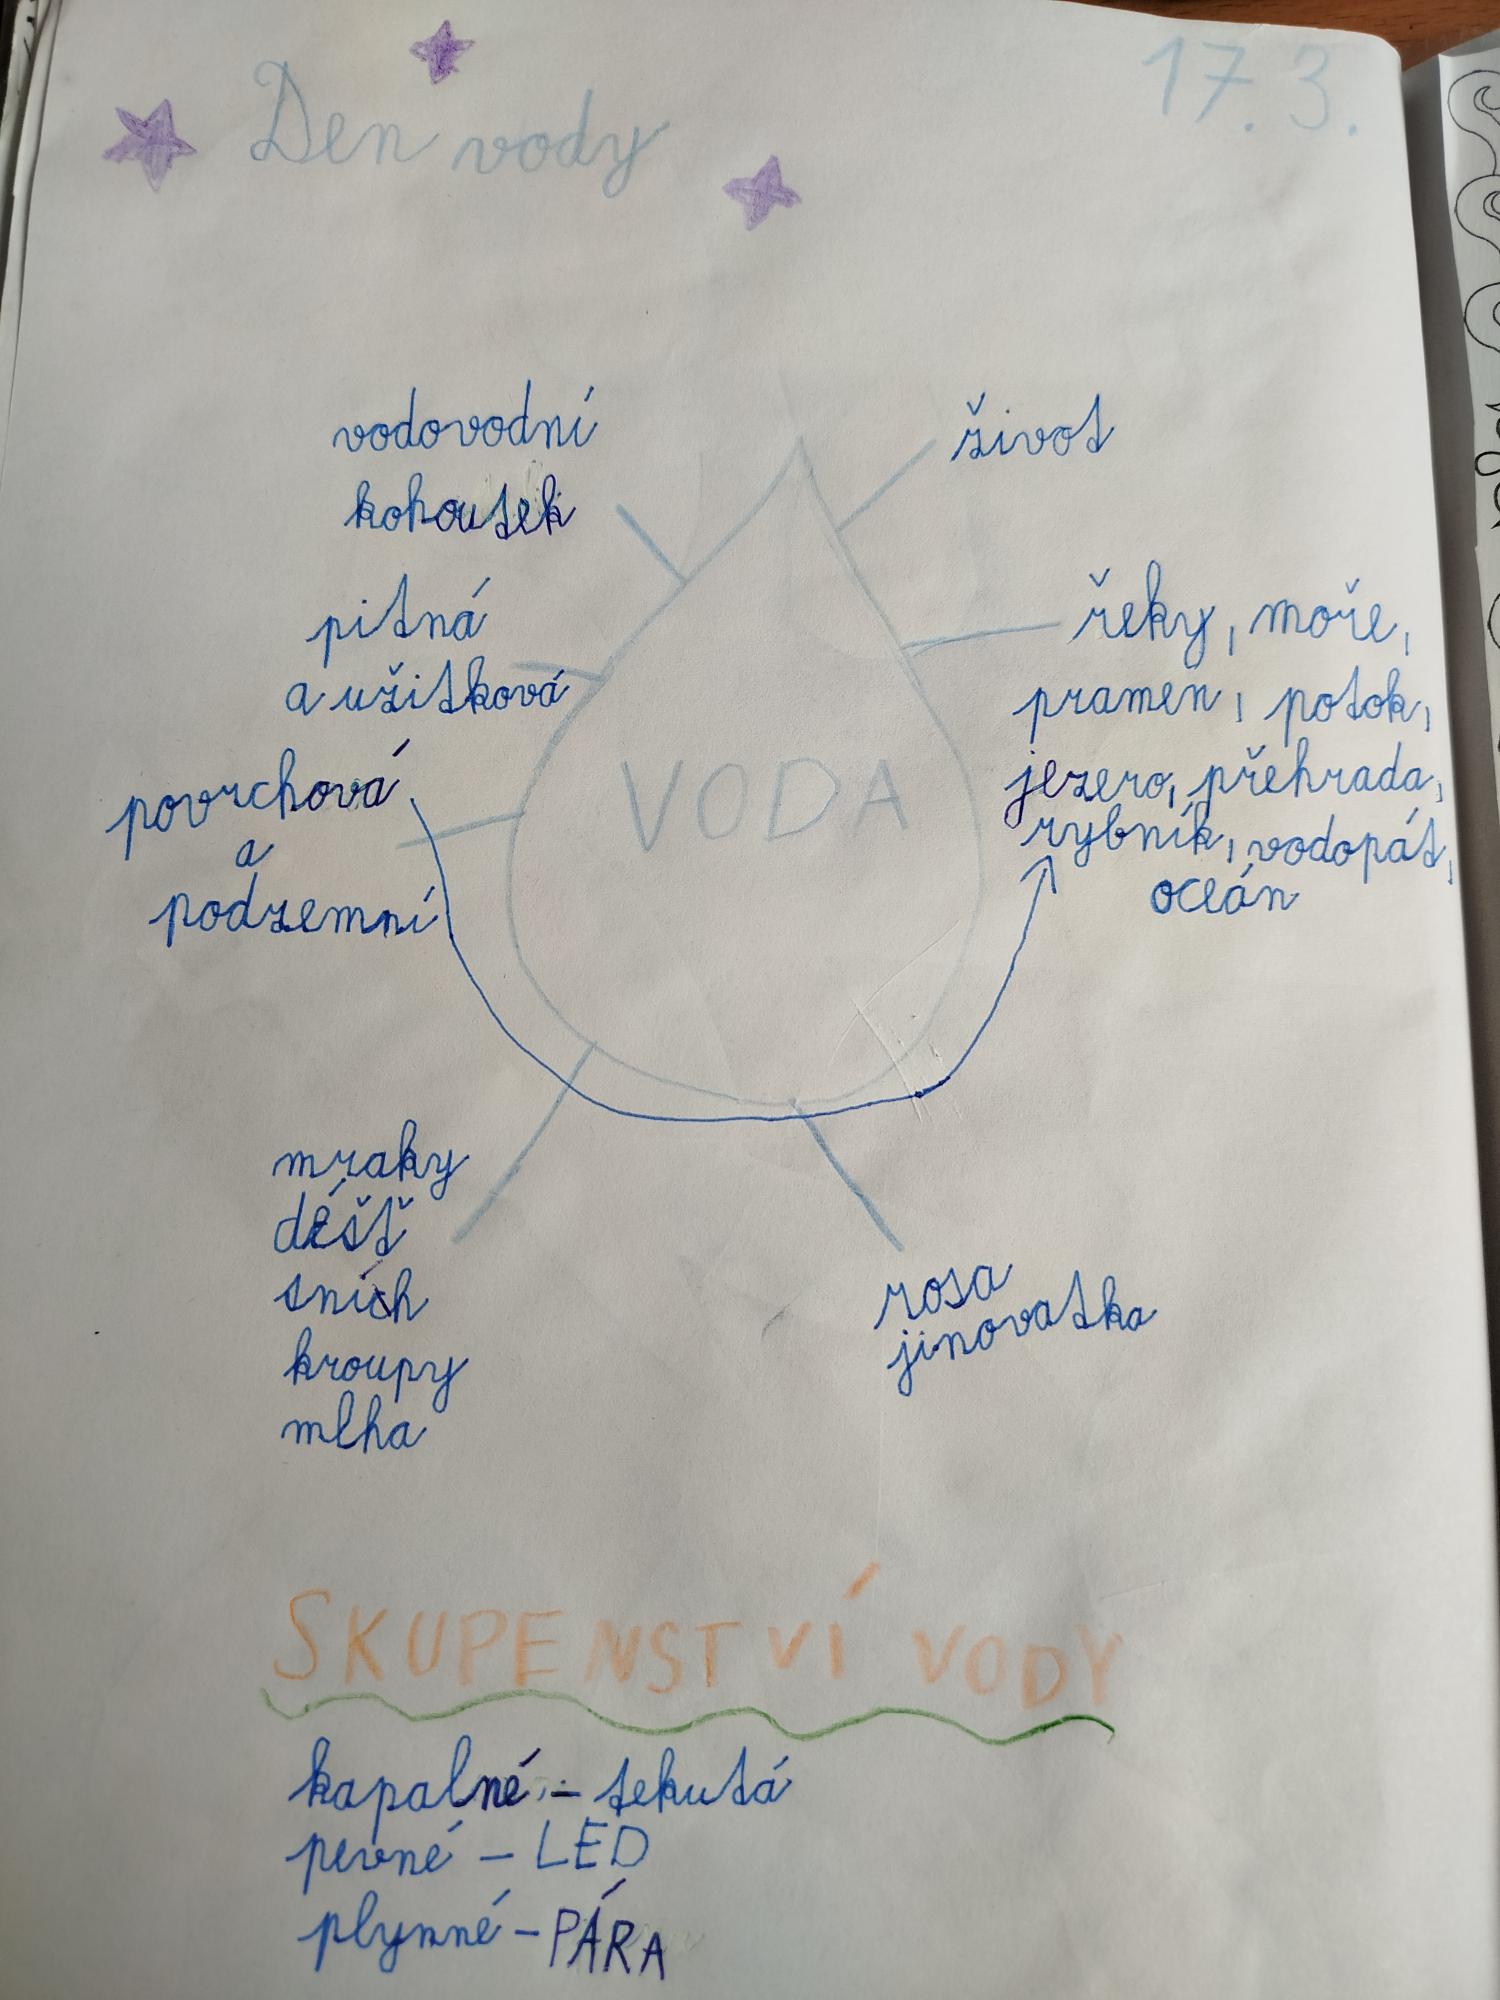 Den vody
17.3.
vodovodní
kohoutek
pitná
a užitková
povrchová
a
podzemní
život
řeky, moře,
pramen, potok,
jezero, přehrada,
rybník, vodopát,
oceán
VODA
mraky
déšť
sních
kroupy
mlha
rosa
jinovatka
SKUPENSTVÍ VODY
kapalné - tekutá
pevné - LED
plynné - PÁRA